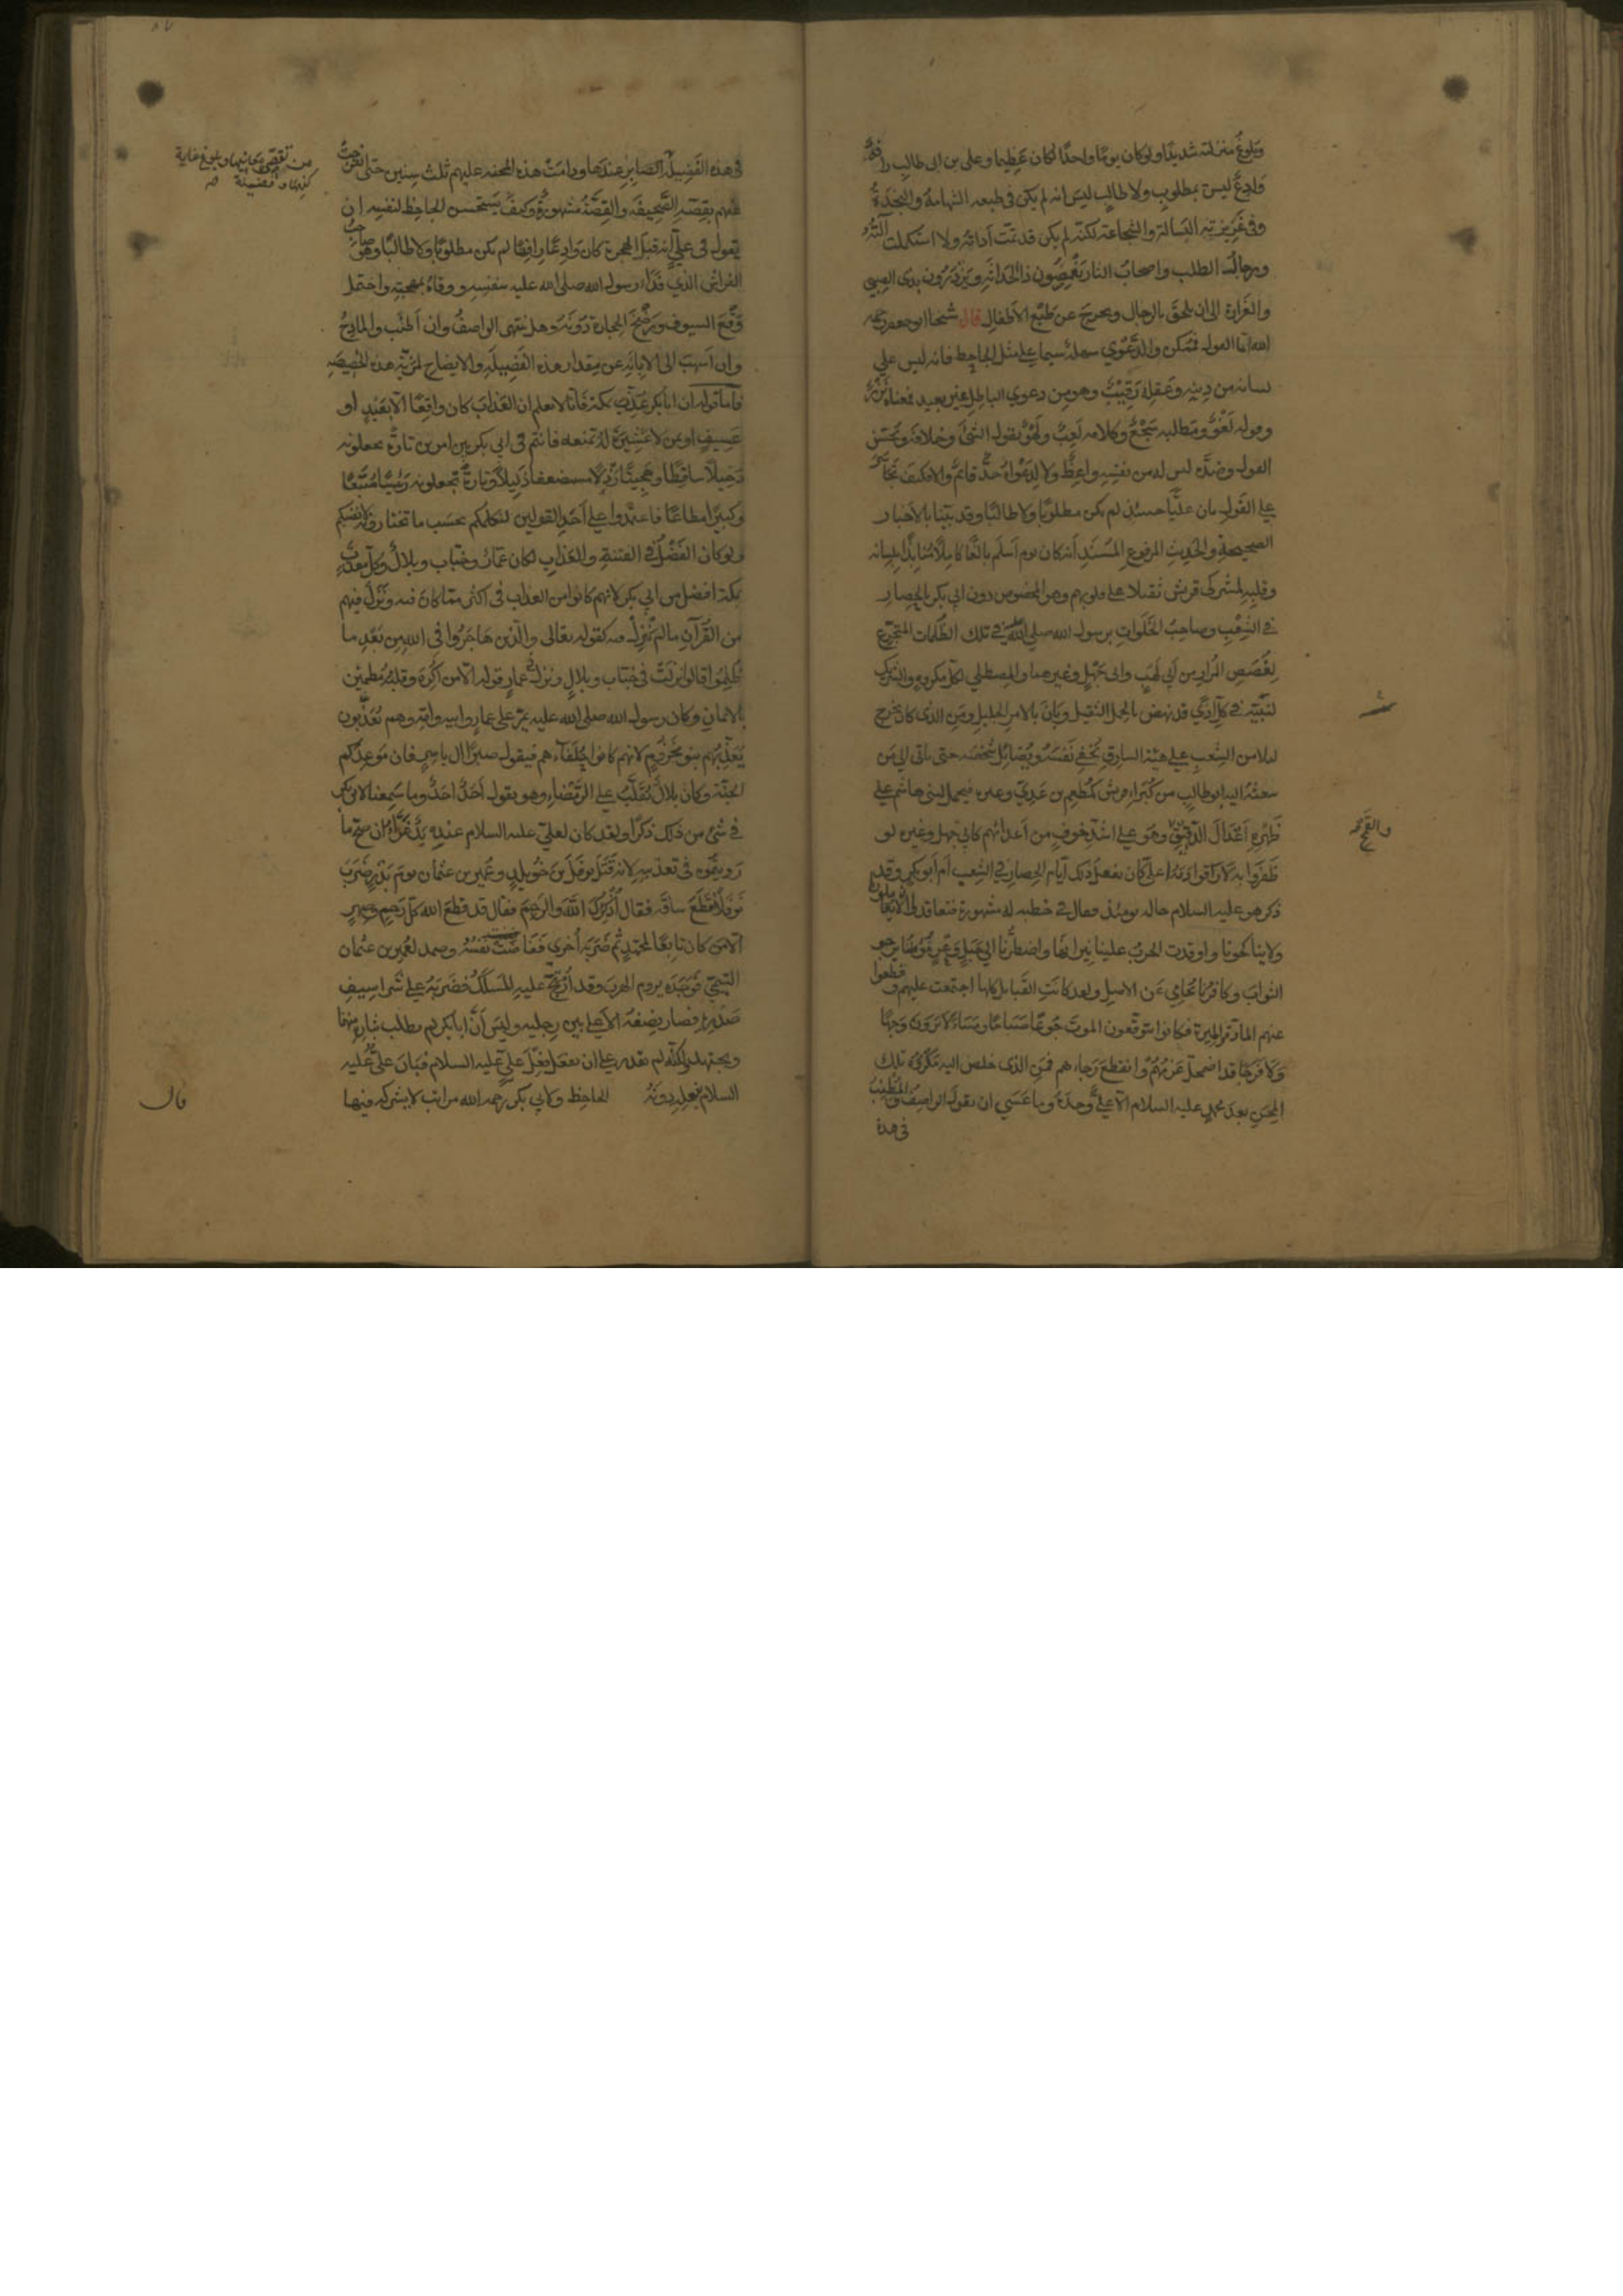 وبلوغ منزلته شديدا ولو كان يوما واحدا لكان عظيما وعلي بن ابي طالب رافه
وادع ليس بمطلوب ولا طالب ليس انه لم يكن في طبعه الشهامة والنجدة
وفي غريزته البسالة والشجاعة لكنه لم يكن قد تمت اداته ولا استكملت آلته
ورجال الطلب واصحاب الثار يغمصون ذا الحداثة ويزدرون بذي الصبي
والغرارة الى ان يلحق بالرجال ويخرج عن طبع الاطفال قال شيخنا ابو جعفر رحمه
الله اما القول فممكن والدعوى سهلة سيما على مثل الجاحظ فانه ليس على
لسانه من دينه وعقله رقيب وهو من دعوى الباطل غير بعيد فمعناه نزر
وقوله لغو ومطلبه سجع وكلامه لعب ولهو يقول الشئ وخلافه ويحسن
القول وضده ليس له من نفسه واعظ ولا لدعواه حد قائم والا فكيف تجاسر
على القول بان عليا حينئذ لم يكن مطلوبا ولا طالبا وقد بينا بالاخبار
الصحيحة والحديث المرفوع المسند انه كان يوم اسلم بالغا كاملا منابذا بلسانه
وقلبه لمشركي قريش ثقيلا على قلوبهم وهو المخصوص دون ابي بكر بالحصار
في الشعب وصاحب الخلوات برسول الله صلى الله في تلك الظلمات المتجرع
لغصص المرار من ابي لهب وابي جهل وغيرهما والمصطلي لكل مكروه والشريك
لنبيه في كل اذى قد نهض بالحمل الثقيل وبان بالامر الجليل ومن الذي كان يخرج
ليلا من الشعب على هيئة السارق يخفي نفسه ويضايل شخصه حتى ياتي الى من
يبعثه اليه ابو طالب من كبراء قريش كمطعم بن عدي وغيره فيحمل لبني هاشم على
ظهره اعدال الدقيق وهو على اشد خوف من اعدائهم كابي جهل وغيره لو
والقمح
ظفروا به لاراقوا دمه اعلي كان يفعل ذلك ايام الحصار في الشعب ام ابو بكر وقد
ذكر هو عليه السلام حاله يومئذ فقال في خطبة له مشهورة فتعاقدوا ان لا يعاملونا
ولا يناكحونا واوقدت الحرب علينا نيرانها واضطرنا الى جبل وعر مؤمننا يرجو
الثواب وكافرنا يحامي عن الاصل ولقد كانت القبائل كلها اجتمعت عليهم وقطعوا
عنهم المادة والميرة فكانوا يتوقعون الموت جوعا صباحا ومساء لا يرون وجها
ولا فرجا قد اضمحل عزمهم وانقطع رجاءهم فمن الذي خلص اليه مكروه تلك
المحن بعد محمد عليه السلام الا علي وحده وما عسى ان يقول الواصف والمطنب
في هذة
في هذه الفضيلة الصابر عندها ودامت هذه المحنة عليهم ثلث سنين حتى انفرجت
من تقصي معانيها وبلوغ غاية
كنهها وفضيلة
عنهم بقصة الصحيفة والقصة مشهورة وكيف يستحسن الجاحظ لنفسه ان
يقول في علي انه قبل الهجرة كان وادعا رافها لم يكن مطلوبا ولا طالبا وهو صاحب
الفراش الذي فدى رسول الله صلى الله عليه بنفسه ووقاه بمهجته واحتمل
وقع السيوف ورضخ الحجارة دونه وهل ينتهي الواصف وان اطنب والمادح
وان اسهب الى الابانة عن مقدار هذه الفضيلة والايضاح لمزية هذه الخصيصة
فاما قوله ان ابا بكر عذب بمكة فانا لا نعلم ان العذاب كان واقعا الا بعبد او
عسيف او بمن لا عشيرة له تمنعه فانتم في ابي بكر بين امرين تارة تجعلونه
دخيلا ساقطا وهجينا رذلا مستضعفا ذليلا وتارة تجعلونه رئيسا متبعا
وكبيرا مطاعا فاعتمدوا على احد القولين لنكلمكم بحسب ما تختارونه لانفسكم
ولو كان الفضل في الفتنة والعذاب لكان عمار وخباب وبلال وكل معذب
بمكة افضل من ابي بكر لانهم كانوا من العذاب في اكثر مما كان فيه ونزل فيهم
من القرآن ما لم ينزل فيه كقوله تعالى والذين هاجروا في الله من بعد ما
ظلموا قالوا نزلت في خباب وبلال ونزل في عمار قوله الا من اكره وقلبه مطمئن
بالايمان وكان رسول الله صلى الله عليه يمر على عمار وابيه وامه وهم يعذبون
يعذبهم بنو مخزوم لانهم كانوا حلفاءهم فيقول صبرا آل ياسر فان موعدكم
الجنة وكان بلال يقلب على الرمضاء وهو يقول احد احد وما سمعنا لابي بكر
في شئ من ذلك ذكرا ولقد كان لعلي عليه السلام عنده يد غراء ان صح ما
رويتموه في تعذيبه لانه قتل نوفل بن خويلد وعمير بن عثمان يوم بدر ضرب
نوفلا فقطع ساقه فقال اذكرك الله والرحم فقال قد قطع الله كل رحم وصهر
الا من كان تابعا لمحمد ثم ضربه اخرى ففاضت نفسه وصمد لعمير بن عثمان
التيمي فوجده يروم الهرب وقد ارتج عليه المسلك فضربه على شراسيف
صدره فصار نصفه الاعلى بين رجليه وليس ان ابا بكر لم يطلب بثاره منهما
ويجتهد لكنه لم يقدر على ان يفعل فعل علي عليه السلام فبان علي عليه
السلام بفعله دونه الجاحظ ولابي بكر رحمه الله مراتب لا يشركه فيها
قال